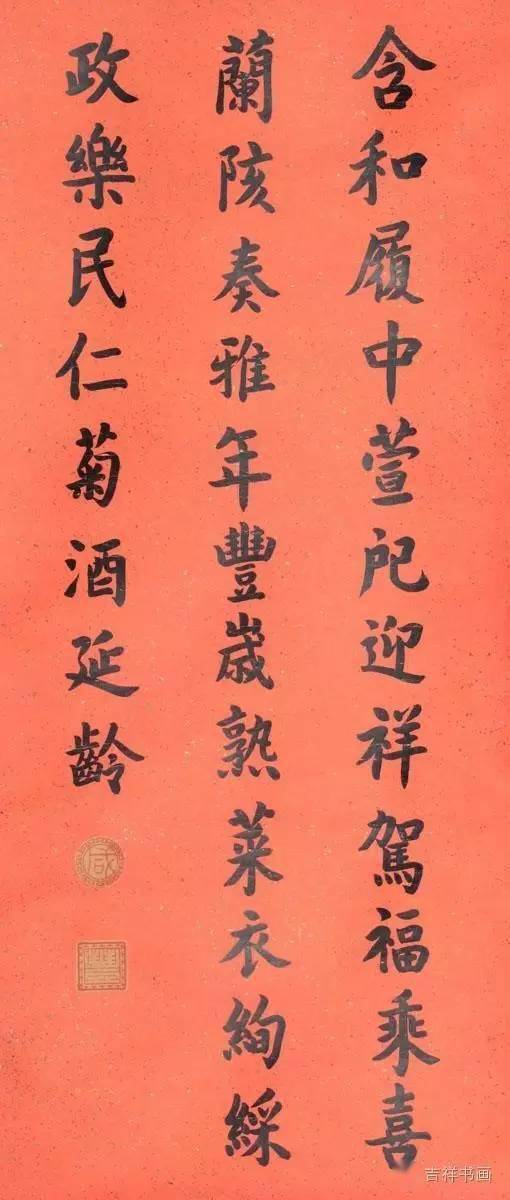 含和履中萱戺迎祥駕福乘喜
蘭陔奏雅年豐歲熟萊衣絢綵
政樂民仁菊酒延齡
咸
豐
吉祥书画